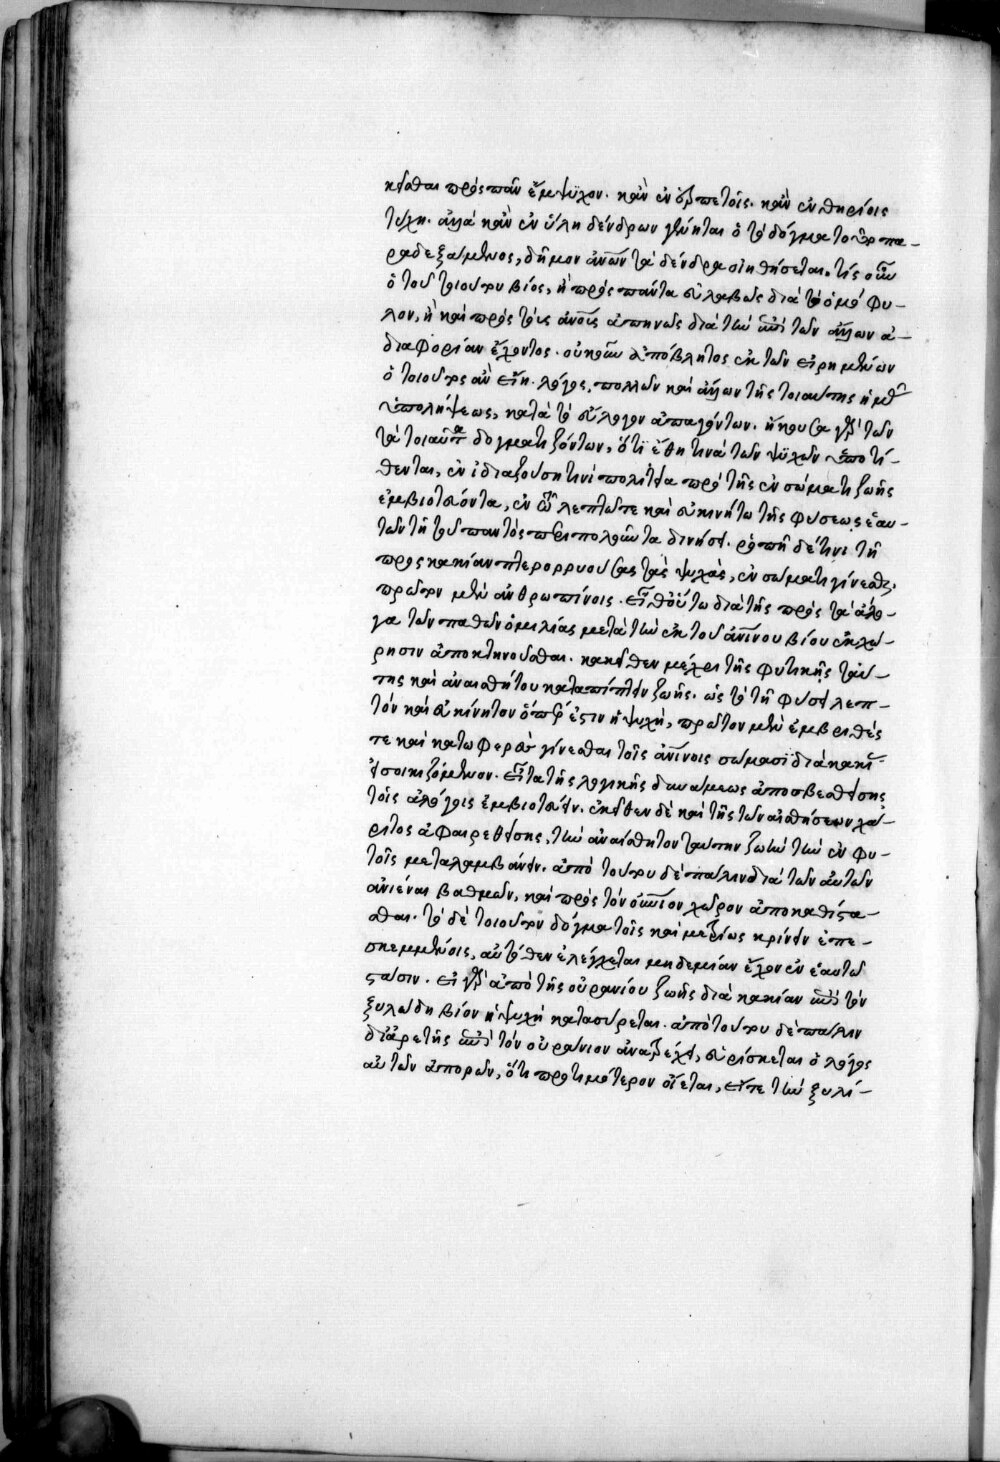 κεῖσθαι πρὸς πᾶν ἔμψυχον. κἂν ἐν ἑρπετοῖς. κἂν ἐν θηρίοις
τύχῃ. ἀλλὰ κἂν ἐν ὕλῃ δένδρων γένηται ὁ τὸ δόγμα τοῦτο πα-
ραδεξάμενος, δῆμον ἀνων τὰ δένδρα οἰηθήσεται. τίς οὖν
ὁ τοῦ τοιούτου βίος, ἢ πρὸς πάντα εὐλαβῶς διὰ τὸ ὁμόφυ-
λον, ἢ καὶ πρὸς τοὺς ἀνους ἀπηνῶς διὰ τὴν ἐπὶ τῶν ἄλλων ἀ-
διαφορίαν ἔχοντος. οὐκοῦν ἀπόβλητος ἐκ τῶν εἰρημένων
ὁ τοιοῦτος ἂν εἴη λόγος, πολλῶν καὶ ἄλλων τῆς τοιαύτης ἡμᾶς
ὑπολήψεως, κατὰ τὸ εὔλογον ἀπαγόντων. ἤκουσα γὰρ τῶν
τὰ τοιαῦτα δογματιζόντων, ὅτι ἔθνη τινὰ τῶν ψυχῶν ὑποτί-
θενται, ἐν ἰδιαζούσῃ τινὶ πολιτεία πρὸ τῆς ἐν σώματι ζωῆς
ἐμβιοτεύοντα, ἐν τῶ λεπτῶ τε καὶ εὐκινήτω τῆς φύσεως ἑαυ-
τῶν τῇ τοῦ παντὸς συμπεριπολοῦντα δινήσει. ῥοπῇ δέ τινι τῇ
πρὸς κακίαν πτερορρυούσας τὰς ψυχὰς, ἐν σώματι γίνεσθαι,
πρῶτον μὲν ἀνθρωπίνοις. εἶθ' οὕτω διὰ τῆς πρὸς τὰ ἄλο-
γα τῶν παθῶν ὁμιλίας μετὰ τὴν ἐκ τοῦ ἀνίνου βίου ἐκχώ-
ρησιν ἀποκτηνοῦσθαι. κἀκεῖθεν μέχρι τῆς φυτικῆς ταύ-
της καὶ ἀναισθήτου καταπίπτειν ζωῆς. ὡς τὸ τῇ φύσει λεπ-
τόν καὶ εὐκίνητον ὅπερ ἐστὶν ἡ ψυχή, πρῶτον μὲν ἐμβριθές
τε καὶ κατωφερὲς γίνεσθαι τοῖς ἀνίνοις σώμασι διὰ κακίας
εἰσοικιζόμενον. εἶτα τῆς λογικῆς δυνάμεως ἀποσβεσθείσης
τοῖς ἀλόγοις ἐμβιοτεύειν. ἐκεῖθεν δὲ καὶ τῆς τῶν αἰσθήσεων χά-
ριτος ἀφαιρεθείσης, τὴν ἀναίσθητον ταύτην ζωὴν τὴν ἐν φυ-
τοῖς μεταλαμβάνειν. ἀπὸ τούτου δὲ πάλιν διὰ τῶν αὐτῶν
ἀνιέναι βαθμῶν, καὶ πρὸς τὸν οὐνιον χῶρον ἀποκαθίστα-
σθαι. τὸ δὲ τοιοῦτον δόγμα τοῖς καὶ μετρίως κρίνειν ἐπε-
σκεμμένοις, αὐτόθεν ἐλέγχεται μηδεμίαν ἔχον ἐν ἑαυτῶ
στάσιν. εἰ γὰρ ἀπὸ τῆς οὐρανίου ζωῆς διὰ κακίαν ἐπὶ τὸν
ξυλώδη βίον ἡ ψυχὴ κατασύρεται. ἀπὸ τούτου δὲ πάλιν
δι' ἀρετῆς ἐπὶ τὸν οὐράνιον ἀνατρέχει, εὑρίσκεται ὁ λόγος
αὐτῶν ἀπορῶν, ὅτι προτιμότερον οἴεται, εἴτε τὴν ξυλί-